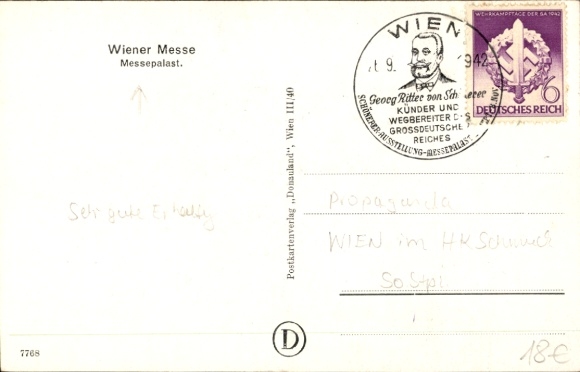 Wiener Messe
Messepalast.
Sehr gute Erhaltg
7768
Postkartenverlag „Donauland", Wien III/40
D
WIEN
9. 1942
Georg Ritter von
KÜNDER UND
WEGBEREITER
GROSSDEUTSCHE
REICHES
SCHÖNERER-AUSSTELLUNG-MESSEPALAST
WEHRKAMPFTAGE DER SA 1942
6
DEUTSCHES REICH
Propaganda
WIEN im HK Schmuck
18€